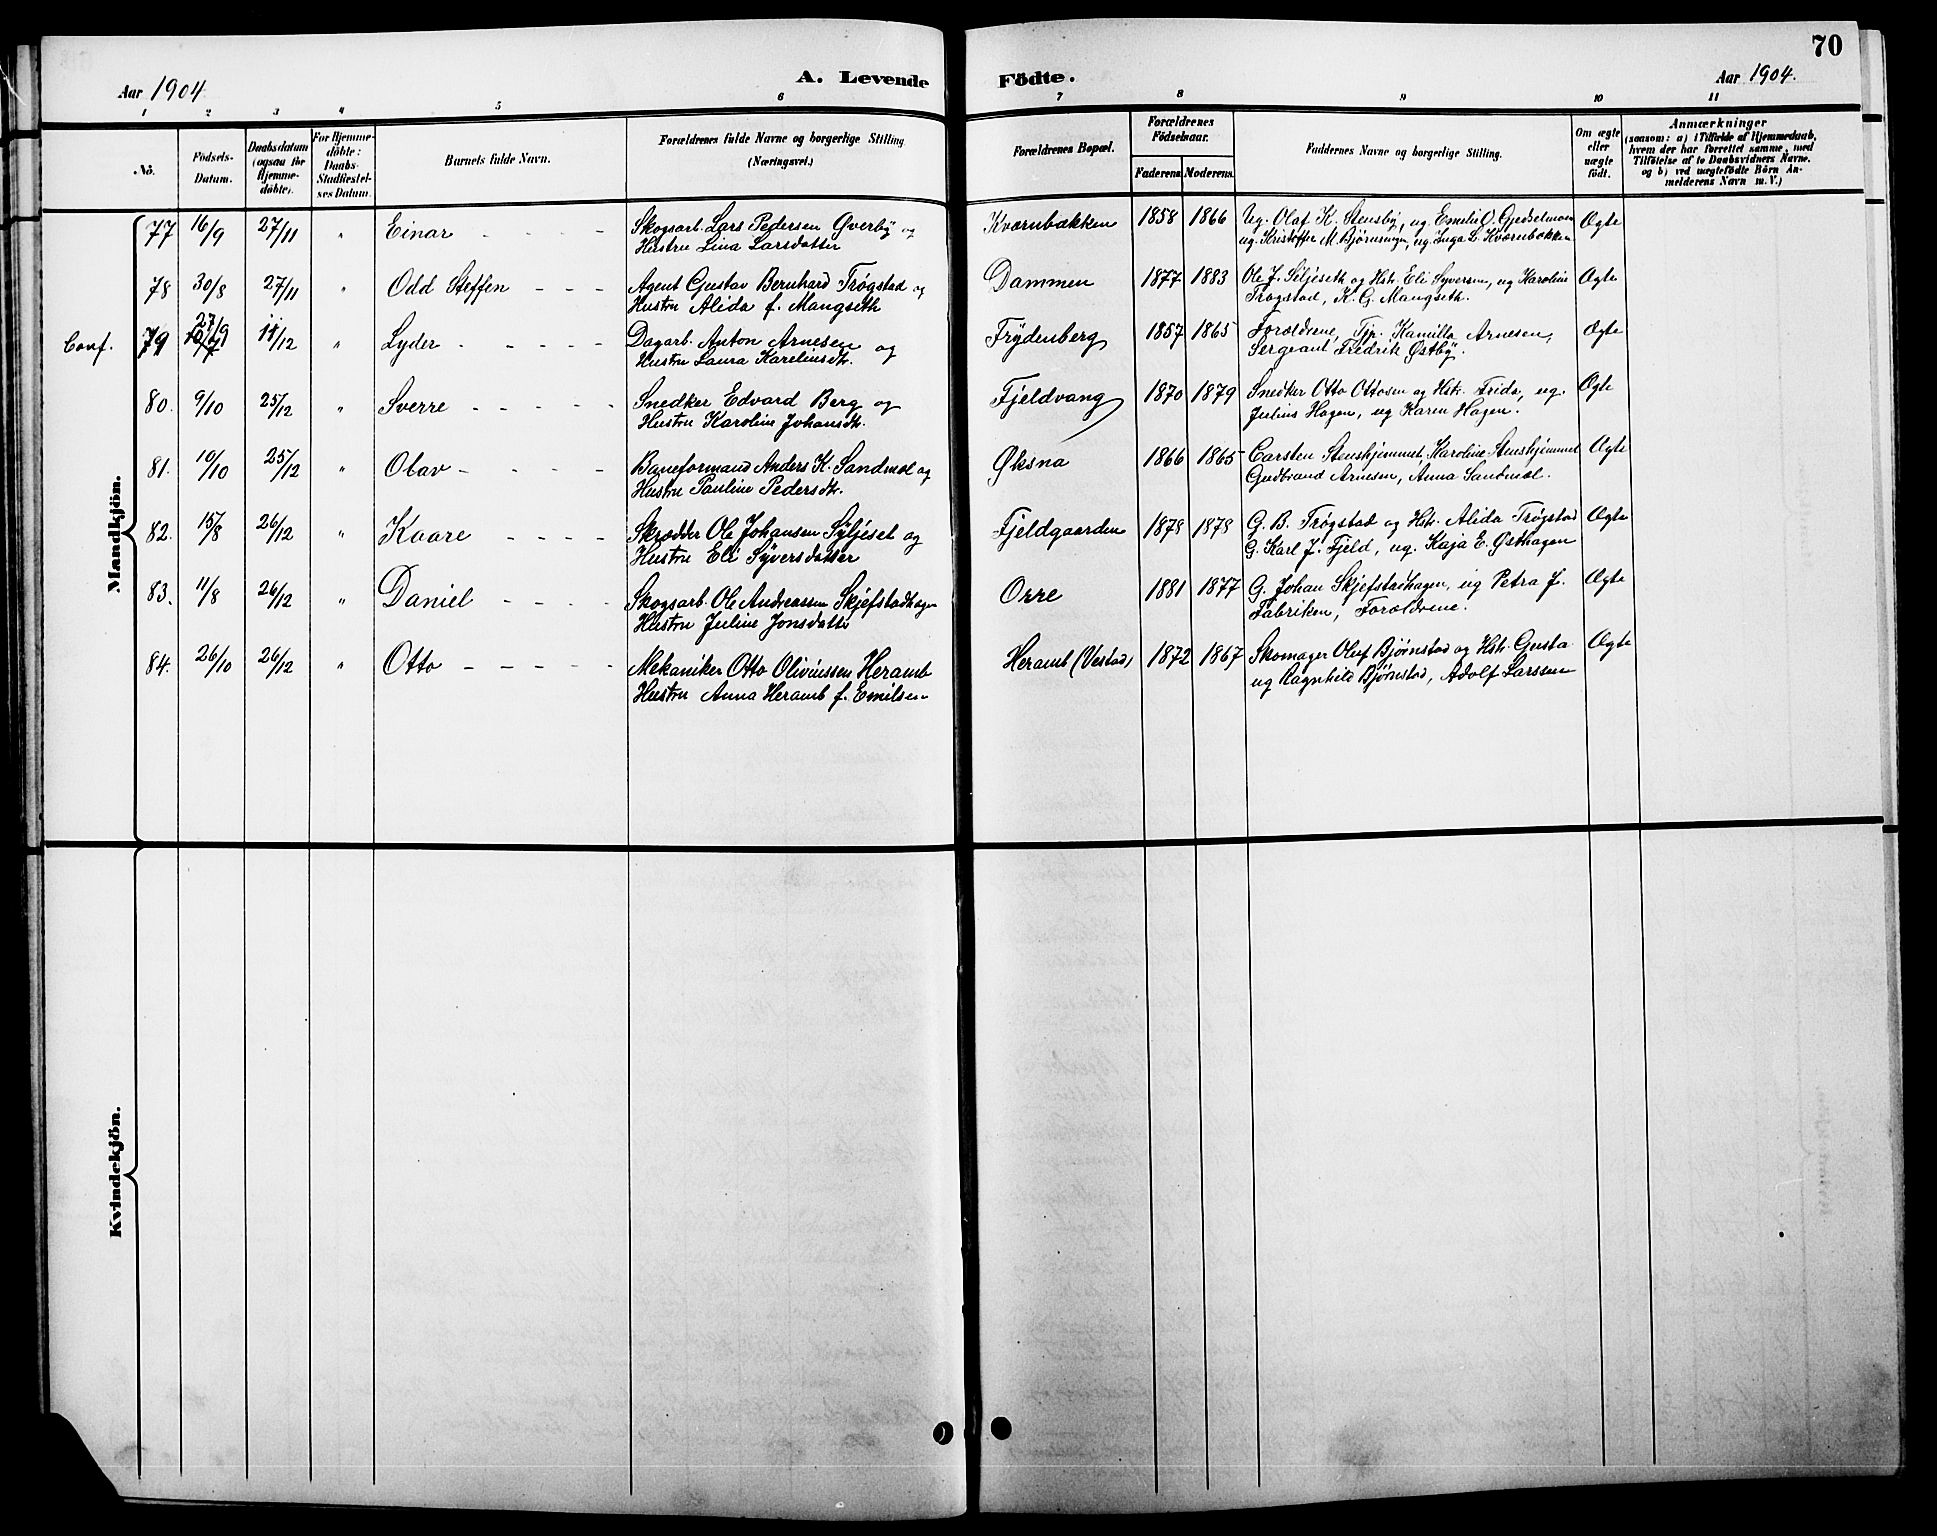 70
Aar 1904
A. Levende Födte.
Aar 1904.
1 2 3 4 5 6 7 8 9 10 11
No.
Födsels-Datum.
Daabsdatum (ogsaa for Hjemme-döbte).
For Hjemme-döbte: Daabs-Stadfæstel-ses Datum.
Barnets fulde Navn.
Forældrenes fulde Navne og borgerlige Stilling (Næringsvei.)
Forældrenes Bopæl.
Forældrenes Födselsaar.
Faderens Moderens.
Faddernes Navne og borgerlige Stilling.
Om ægte eller uægte födt.
Anmærkninger
(saasom: a) i Tilfælde af Hjemmedaab,
hvem der har forrettet samme, med
Tilföielse af to Daabsvidners Navne.
og b) ved uægtefödte Börn An-
melderens Navn m. V.)
Mandkjön.
77 16/9 27/11 " Einar Skogsarb. Lars Pedersen Øverby og Kværnbækken 1858 1866 Ug. Olaf K. Stensby, ug. Emilie O. Gudselmoen Ægte
Hustru Lina Larsdatter ug. Kristoffer M. Bjørnsmoen, ug. Inga L. Kværnbækken
78 30/8 27/11 " Odd Steffen Agent Gustav Bernhard Trøgstad og Dammen 1877 1883 Ole J. Siljeseth og Hstr. Eli Syversen, ug Karoline Ægte
Hustru Alida f. Mangseth Trøgstad, K. G. Mangseth.
Conf. 79 27/9 11/12 " Lyder Dagarb. Anton Arnesen og Frydenberg 1857 1865 Forældrene, Tjp. Kamilla Arnesen, Ægte
Hustru Laura Kareliusdtr. Sergeant Fredrik Østby.
80. 9/10 25/12 " Sverre Snedker Edvard Berg og Fjeldvang 1870 1879 Snedker Otto Ottosen og Hstr. Frida, ug. Ægte
Hustru Karoline Johansdtr. Julius Hagen, ug Karen Hagen.
81. 10/10 25/12 " Olav Baneformand Anders K. Sandmæl og Øksna 1866 1865 Carsten Stenshjemmet, Karoline Stenshjemmet Ægte
Hustru Pauline Pedersdtr. Gudbrand Arnesen, Anna Sandmæl.
82. 15/8 26/12 " Kaare Skrædder Ole Johansen Syljeset og Fjeldgaarden 1878 1878 G. B. Trøgstad og Hstr. Alida Trøgstad Ægte
Hustru Eli Syversdatter G. Karl J. Fjeld, ug. Kaja E. Østhagen
83. 11/8 26/12 " Daniel Skogsarb. Ole Andreassen Skjefstadhagen Orre 1881 1877 G. Johan Skjefstadhagen, ug Petra J. Ægte
Hustru Juline Jonsdatter Fabriken, Forældrene.
84. 26/10 26/12 " Otto Mekaniker Otto Oliviussen Heramb Heramb (Vestad) 1872 1867 Skomager Oluf Bjørnstad og Hstr. Gusta Ægte
Hustru Anna Heramb f. Emilsen ug Ragnhild Bjørnstad, Adolf Larssen
Kvindekjön.